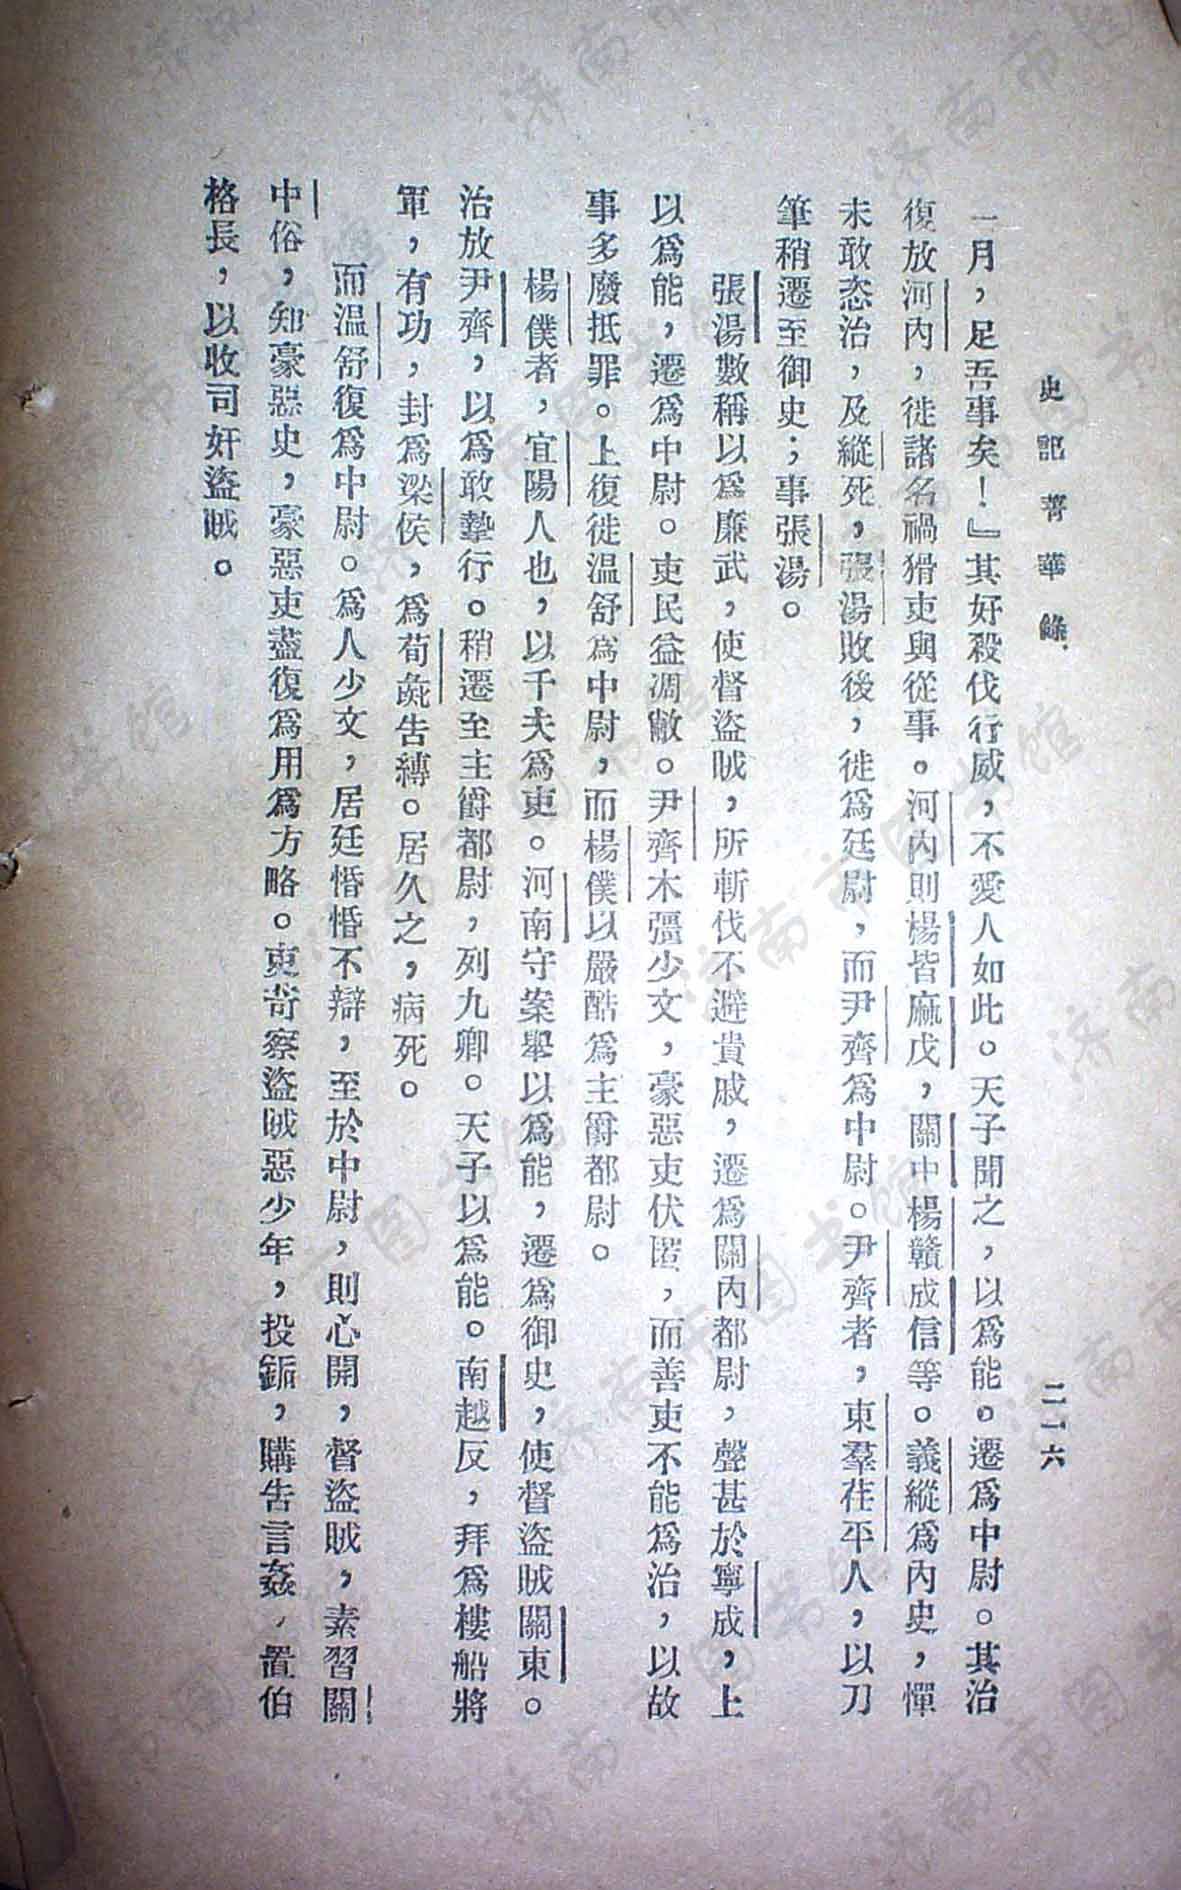 史記菁華錄
二一六
一月，足吾事矣！』其好殺伐行威，不愛人如此。天子聞之，以爲能。遷爲中尉。其治
復放河內，徙諸名禍猾吏與從事。河內則楊皆麻戊，關中楊贛成信等。義縱爲內史，憚
未敢恣治，及縱死，張湯敗後，徙爲廷尉，而尹齊爲中尉。尹齊者，東羣茌平人，以刀
筆稍遷至御史；事張湯。
張湯數稱以爲廉武，使督盜賊，所斬伐不避貴戚，遷爲關內都尉，聲甚於寧成，上
以爲能，遷爲中尉。吏民益凋敝。尹齊木彊少文，豪惡吏伏匿，而善吏不能爲治，以故
事多廢抵罪。上復徙溫舒爲中尉，而楊僕以嚴酷爲主爵都尉。
楊僕者，宜陽人也，以千夫爲吏。河南守案舉以爲能，遷爲御史，使督盜賊關東。
治放尹齊，以爲敢摯行。稍遷至主爵都尉，列九卿。天子以爲能。南越反，拜爲樓船將
軍，有功，封爲梁侯，爲荀彘告縛。居久之，病死。
而溫舒復爲中尉。爲人少文，居廷惛惛不辯，至於中尉，則心開，督盜賊，素習關
中俗，知豪惡史，豪惡吏盡復爲用爲方略。吏苛察盜賊惡少年，投缿，購告言姦，置伯
格長，以收司奸盜賊。
济南市图书馆